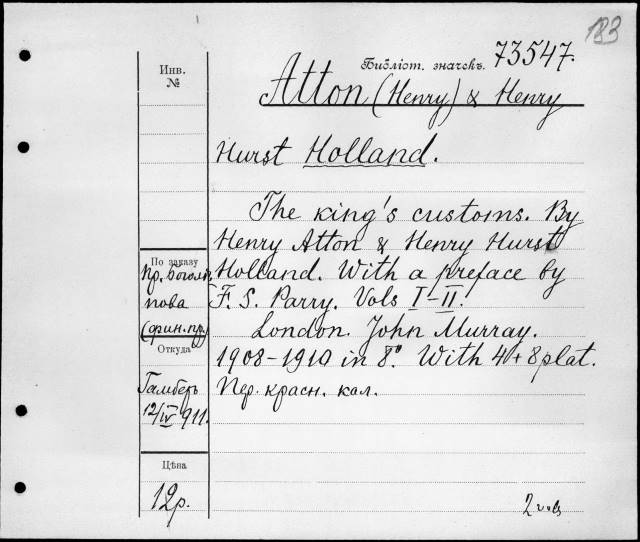 183
Библіот. значекъ. 73547.
Инв.
№
Atton (Henry) & Henry
Hurst Holland.
The king's customs. By
Henry Atton & Henry Hurst
Holland. With a preface by
F. S. Parry. Vols I–II.
London. John Murray.
1908–1910 in 8°. With 4+8 plat.
Пер. красн. кал.
По заказу
пр. Боголѣ-
пова
(фин. пр.)
Откуда
Гамберъ
12/IV 911.
Цѣна
12р.
2 vols